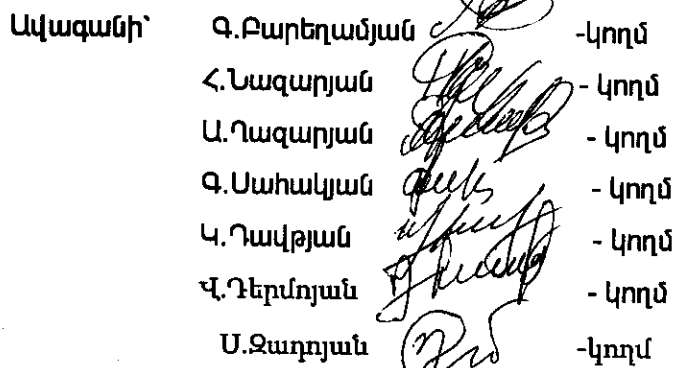 Ավագանի՝ Գ.Բարեղամյան -կողմ
Հ.Նազարյան - կողմ
Ա.Ղազարյան - կողմ
Գ.Սահակյան - կողմ
Կ.Դավթյան - կողմ
Վ.Դերմոյան - կողմ
Ս.Զադոյան -կողմ